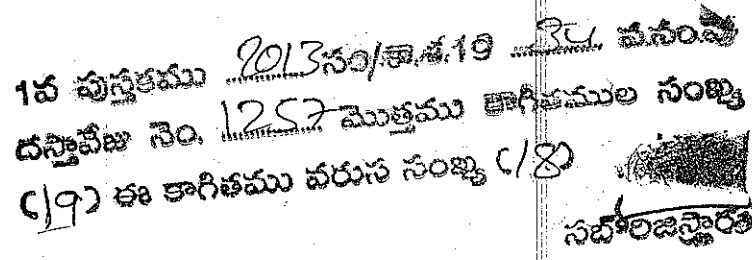 1వ పుస్తకము 2013సం/శా.శ.19 34 వ.సం.పు
దస్తావేజు నెం. 1257 మొత్తము కాగితముల సంఖ్య
(19) ఈ కాగితము వరుస సంఖ్య (18)
సబ్‌రిజిస్ట్రారు